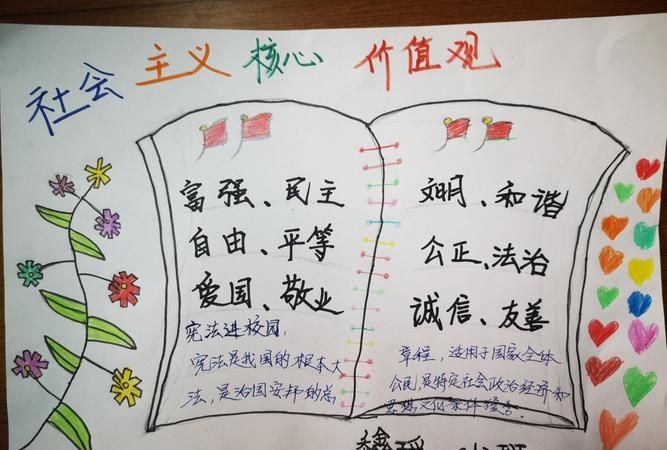 社会主义核心价值观
富强、民主
自由、平等
爱国、敬业
宪法进校园:
宪法是我国的根本大
法,是治国安邦的总
文明、和谐
公正、法治
诚信、友善
章程,适用于国家全体
公民,是特定社会政治经济和
思想文化条件综合